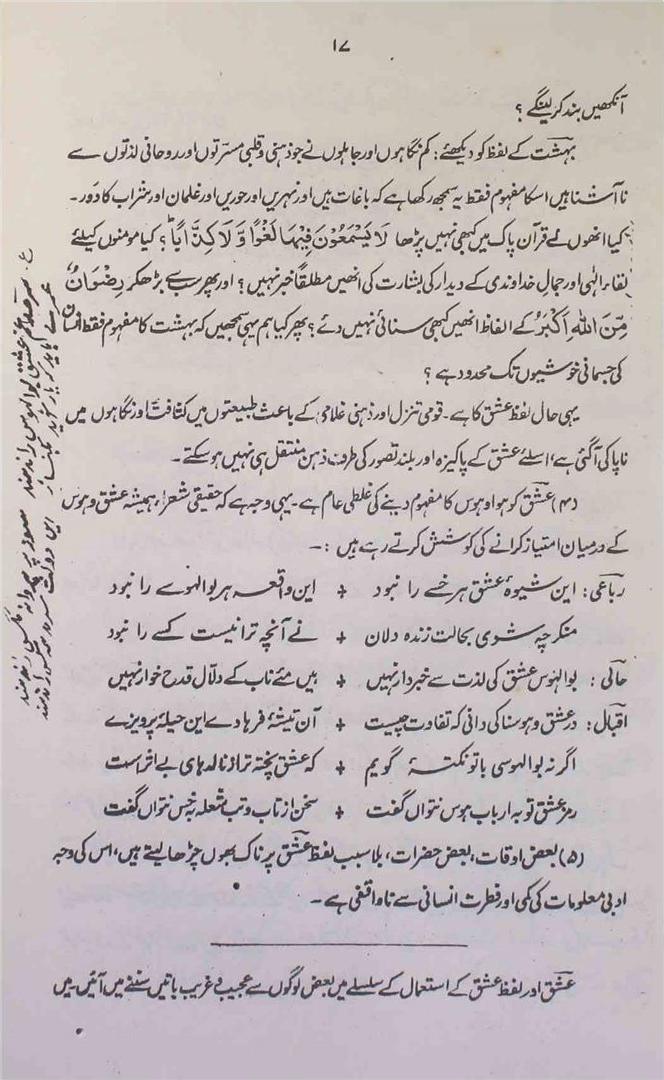 ۱۷
آنکھیں بند کر لینگے ؟
بہشت کے لفظ کو دیکھئے : کم نگاہوں اور جاہلوں نے جو ذہنی و قلبی مسرّتوں اور روحانی لذتوں سے
نا آشنا ہیں اسکا مفہوم فقط یہ سمجھ رکھا ہے کہ باغات ہیں اور نہریں اور حوریں اور غلمان اور شراب کا دَور ۔
کیا انھوں نے قرآن پاک میں کبھی نہیں پڑھا لَا یَسْمَعُوْنَ فِیْهَا لَغْوًا وَّلَا كِذَّابًا ؟ کیا مومنوں کیلئے
لقاء الٰہی اور جمال خداوندی کے دیدار کی بشارت کی انھیں مطلقاً خبر نہیں ؟ اور پھر سب سے بڑھکر رِضْوَانٌ
مِّنَ اللهِ اَكْبَرُ کے الفاظ انھیں کبھی سنائی نہیں دئے ؟ پھر کیا ہم یہی سمجھیں کہ بہشت کا مفہوم فقط انسان
کی جسمانی خوشیوں تک محدود ہے ؟
یہی حال لفظ عشق کا ہے ۔ قومی تنزل اور ذہنی غلامی کے باعث طبیعتوں میں کثافت اور نگاہوں میں
ناپاکی آگئی ہے ، اسلئے عشق کے پاکیزہ اور بلند تصور کی طرف ذہن منتقل ہی نہیں ہو سکتے ۔
(۴) عشق کو ہوا و ہوس کا مفہوم دینے کی غلطی عام ہے ۔ یہی وجہ ہے کہ حقیقی شعراء ہمیشہ عشق و ہوس
کے درمیان امتیاز کرانے کی کوشش کرتے رہے ہیں :۔
رباعی : این شیوۂ عشق ہر خسے را نبود + این واقعہ ہر بوالہوسے را نبود
منکر چہ شوی بحالت زندہ دلان + نے آنچہ ترا نیست کسے را نبود
حالی : بوالہوس عشق کی لذت سے خبردار نہیں + ہیں مئے ناب کے دلّال قدح خوار نہیں
اقبال : در عشق و ہوسناکی دانی کہ تفاوت چیست + آن تیشۂ فرہادے این حیلۂ پرویزے
اگر نہ بوالہوسی با تو نکتۂ گویم + کہ عشق پختہ تر از نالہ ہای بے اثر است
رمز عشق تو بہ ارباب ہوس نتواں گفت + سخن از تاب و تب شعلہ بہ خس نتواں گفت
(۵) بعض اوقات ، بعض حضرات ، بلا سبب لفظ عشق پر ناک بھوں چڑھا لیتے ہیں ، اس کی وجہ
ادبی معلومات کی کمی اور فطرت انسانی سے ناواقفی ہے ۔
عشق اور لفظ عشق کے استعمال کے سلسلے میں بعض لوگوں سے عجیب و غریب باتیں سننے میں آئیں ۔ یں
سرمد غم عشق بوالہوس را ندہند
سوز دل پروانہ مگس را ندہند
عمرے باید کہ یار آید بکنار
این دولت سرمد ہمہ کس را ندہند